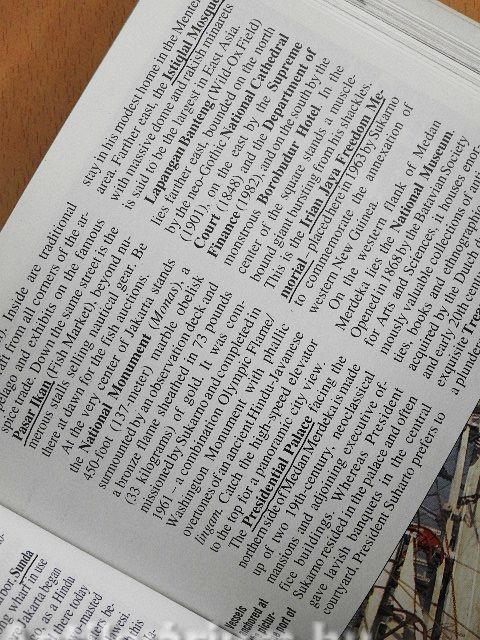 . Inside are traditional
ft from all corners of the ar-
pelago and exhibits on the famous
spice trade. Down the same street is the
Pasar Ikan (Fish Market), beyond nu-
merous stalls selling nautical gear. Be
there at dawn for the fish auctions.
At the very center of Jakarta stands
the National Monument (Monas), a
450-foot (137-meter) marble obelisk
surmounted by an observation deck and
a bronze flame sheathed in 73 pounds
(33 kilograms) of gold. It was com-
missioned by Sukarno and completed in
1961 – a combination Olympic Flame/
Washington Monument with phallic
overtones of an ancient Hindu-Javanese
lingam. Catch the high-speed elevator
to the top for a panoramic city view.
The Presidential Palace facing the
northern side of Medan Merdeka is made
up of two 19th-century, neoclassical
mansions and adjoining executive of-
fice buildings. Whereas President
Sukarno resided in the palace and often
gave lavish banquets in the central
courtyard, President Suharto prefers to
stay in his modest home in the Menteng
area. Farther east, the Istiqlal Mosque
with massive dome and rakish minarets
is said to be the largest in East Asia.
Lapangan Banteng (Wild-Ox Field)
lies farther east, bounded on the north
by the neo-Gothic National Cathedral
(1901), on the east by the Supreme
Court (1848) and the Department of
Finance (1982), and on the south by the
monstrous Borobudur Hotel. In the
center of the square stands a muscle-
bound giant bursting from his shackles.
This is the Irian Jaya Freedom Me-
morial, placed here in 1963 by Sukarno
to commemorate the annexation of
western New Guinea.
On the western flank of Medan
Merdeka lies the National Museum.
Opened in 1868 by the Batavian Society
for Arts and Sciences, it houses enor-
mously valuable collections of anti
ties, books and ethnographic
acquired by the Dutch d
and early 20th centu
exquisite Trea
a plunde
oor, Sunda
ng wharf in use
akarta began
as a Hindu
here today
wasted
be-
resi-
his
essels
nchored at
ort of